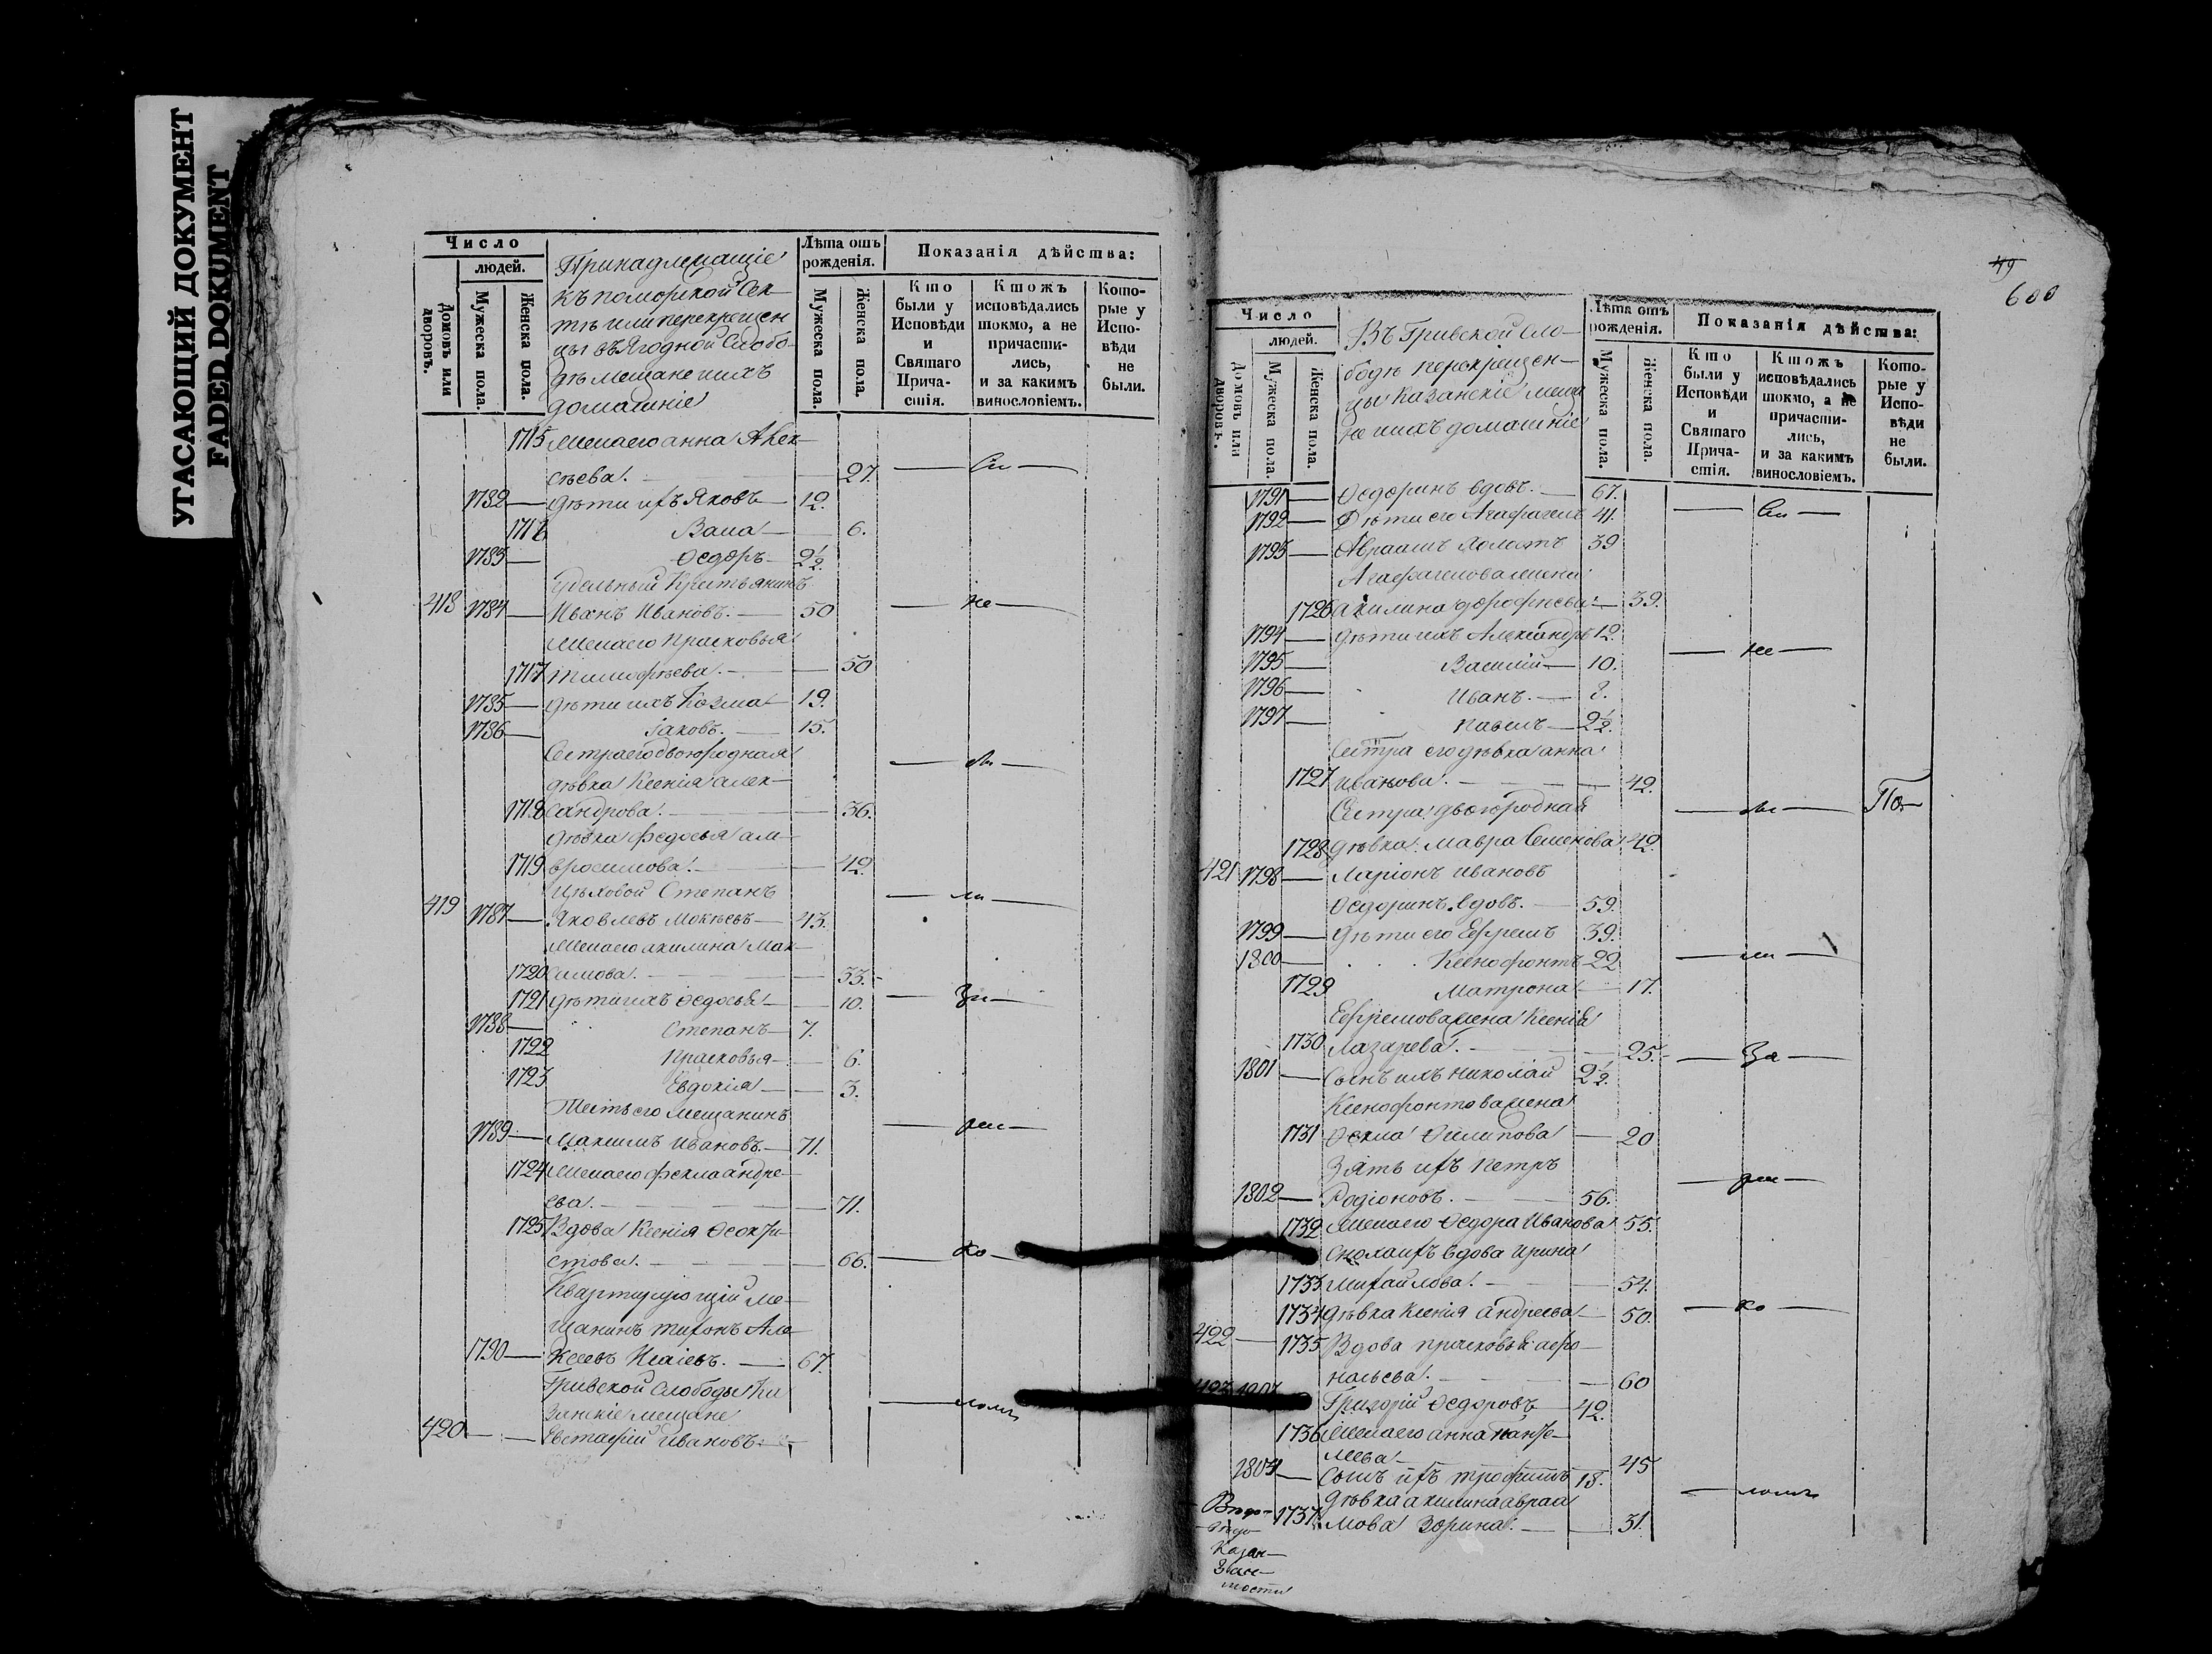 УГАСАЮЩИЙ ДОКУМЕНТ
FADED DOKUMENT
Число
людей.
Домовъ или дворовъ.
Мужеска пола.
Женска пола.
Принадлежащіе
къ поморской Сек-
тѣ или перекрещен
цы въ Ягодной Слобо-
дѣ мещане и ихъ
домашніе
Лѣта отъ рожденія.
Мужеска пола.
Женска пола.
Показанія дѣйства:
Кто были у Исповѣди и Святаго Прича-стія.
Ктожъ исповѣдались токмо, а не причасти-лись, и за какимъ винословіемъ.
Кото-рые у Испо-вѣди не были.
1715 Жена его Анна Алек-
сѣева. — 27.
1782 — Дѣти ихъ Яковъ — 12.
1716 Васса — 6.
1783 — Ѳедоръ — 2½.
Удельный Крестьянинъ
418 1784 — Иванъ Ивановъ. — 50 — не —
Жена его Прасковья
1717 Тимофѣева. — 50
1785 — Дѣти ихъ Козма 19.
1786 — Іаковъ. — 15.
Сестра его двоюродная
дѣвка Ксенія Алек-
1718 сандрова. — 36.
дѣвка Федосья Ам-
1719 вросимова. — 42.
Цѣховой Степанъ
419 1787 — Яковлевъ Мокѣевъ — 43.
Жена его Акилина Мак-
1720 симова. — 33.
1721 Дѣти ихъ Ѳедосья — 10.
1788 — Степанъ — 7.
1722 Прасковья — 6.
1723 Евдокія — 3.
Тесть его мещанинъ
1789 — Максимъ Ивановъ. — 71.
1724 Жена его Фекла Андре-
ева. — 71.
1725 Вдова Ксенія Ѳеокти-
стова. — 66. — ко —
Квартирующій ме-
щанинъ Тихонъ Але-
1790 — ксеевъ Исаіевъ. — 67.
Гривской Слободы Ка
занскіе мещане
420 — Евстафій Ивановъ.
49
600
Число
людей.
Домовъ или дворовъ.
Мужеска пола.
Женска пола.
Въ Гривской Сло-
бодѣ перекрещен-
цы Казанскіе меща
не и ихъ домашніе
Лѣта отъ рожденія.
Мужеска пола.
Женска пола.
Показанія дѣйства:
Кто были у Исповѣди и Святаго Прича-стія.
Ктожъ исповѣдались токмо, а не причасти-лись, и за какимъ винословіемъ.
Кото-рые у Испо-вѣди не были.
1791 — Ѳедоринъ вдовъ. — 67.
1792 — Дѣти его Агафагелъ 41.
1793 — Авраамъ холостъ 39
Агафагелова жена
1726 Акилина Дорофѣева — 39.
1794 — Дѣти ихъ Александръ 12.
1795 — Василій — 10. — не —
1796 — Иванъ. — 8.
1797 — Павелъ — 2½.
Сестра его дѣвка Анна
1727 Иванова. — 42.
Сестра двоюродная
1728 дѣвка Мавра Семенова 42.
421 1798 — Ларіонъ Ивановъ
Ѳедоринъ вдовъ. — 59.
1799 — Дѣти его Ефремъ 39.
1800 — Ксенофонтъ 22
1729 Матрона — 17.
Ефремова жена Ксенія
1730 Лазарева. — 25.
1801 — Сынъ ихъ Николай 2½.
Ксенофонтова жена
1731 Ѳекла Филипова — 20
Зять ихъ Петръ
1802 — Родіоновъ. — 56.
1732 Жена его Ѳедора Иванова 55.
Сноха ихъ вдова Ирина
1733 Михайлова. — 54.
1734 Дѣвка Ксенія Андреева — 50. — ко —
422 — 1735 Вдова Прасковья Афо-
насьева. — 60
Григорій Ѳедоровъ — 42.
1736 Жена его Анна
лева — 45
1804 — Сынъ ихъ Трофимъ 18.
дѣвка Акилина Авраа
1737 мова Зорина. — 31.